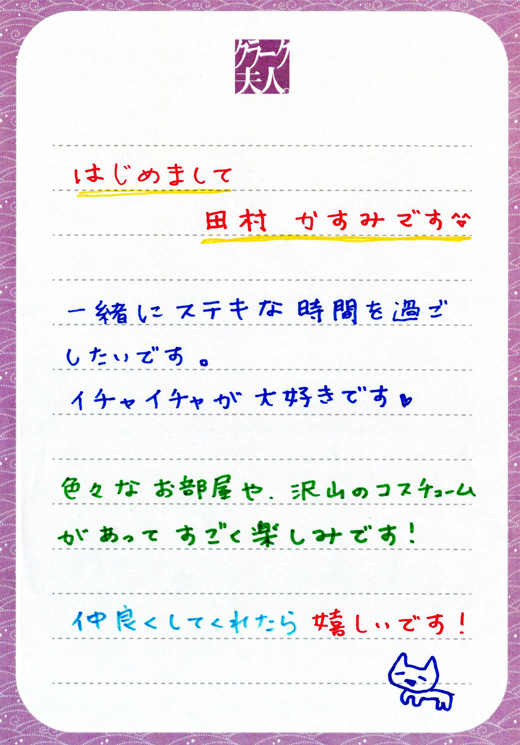 クラーク
夫人。
はじめまして
田村 かすみです♡
一緒に ステキな 時間を 過ご
したいです。
イチャイチャが 大好きです♥
色々な お部屋や、沢山のコスチューム
が あって すごく 楽しみです!
仲良くしてくれたら 嬉しいです!